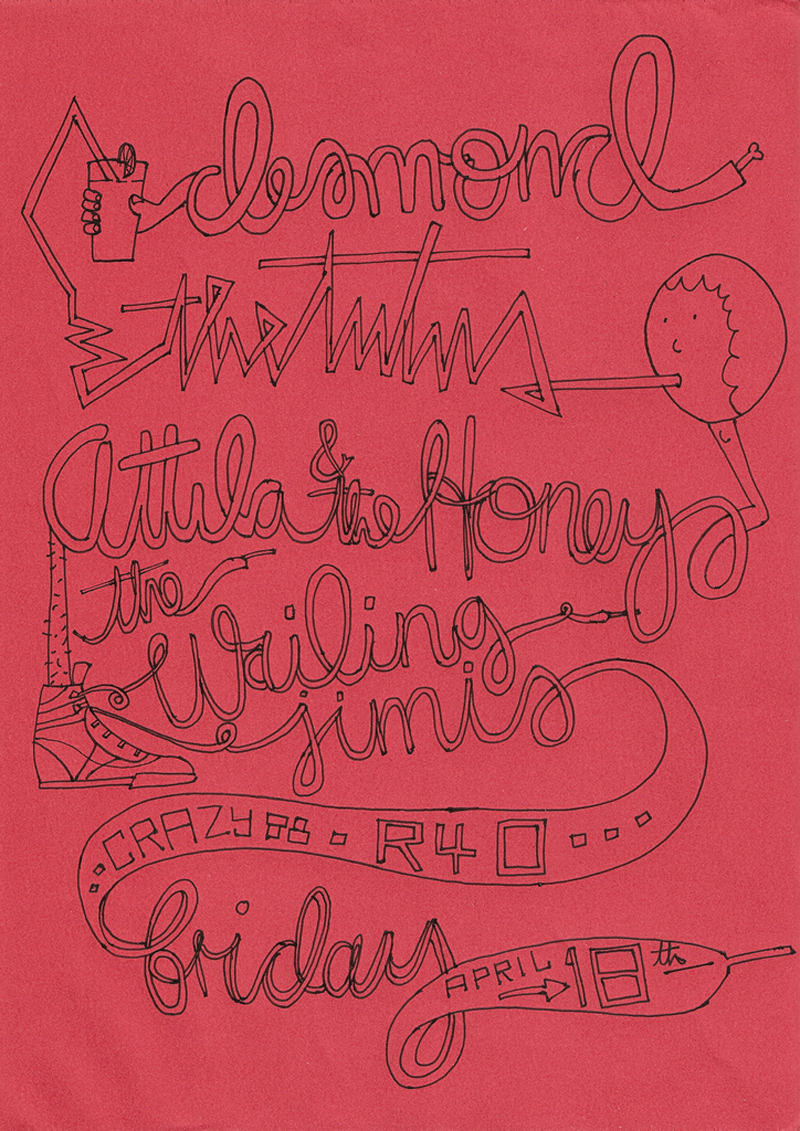 desmond
the tutus
Attila & the Honeys
the
Wailing
jimis
CRAZY 88 R40 ...
friday
APRIL → 18th